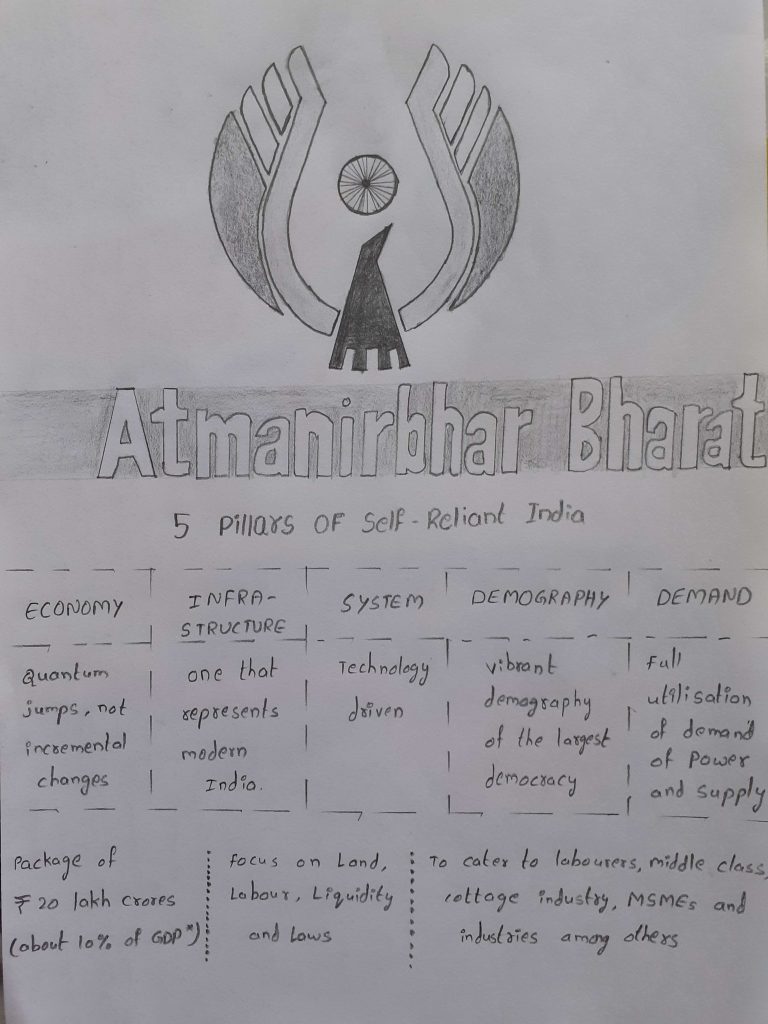 Atmanirbhar Bharat
5 Pillars OF Self-Reliant India
ECONOMY
Quantum
jumps, not
incremental
changes
INFRA-
STRUCTURE
one that
represents
modern
India.
SYSTEM
Technology
driven
DEMOGRAPHY
vibrant
demography
of the largest
democracy
DEMAND
Full
utilisation
of demand
of power
and supply
Package of
₹ 20 lakh crores
(about 10% of GDP*)
Focus on Land,
Labour, Liquidity
and Laws
To cater to labourers, middle class,
cottage industry, MSMEs and
industries among others